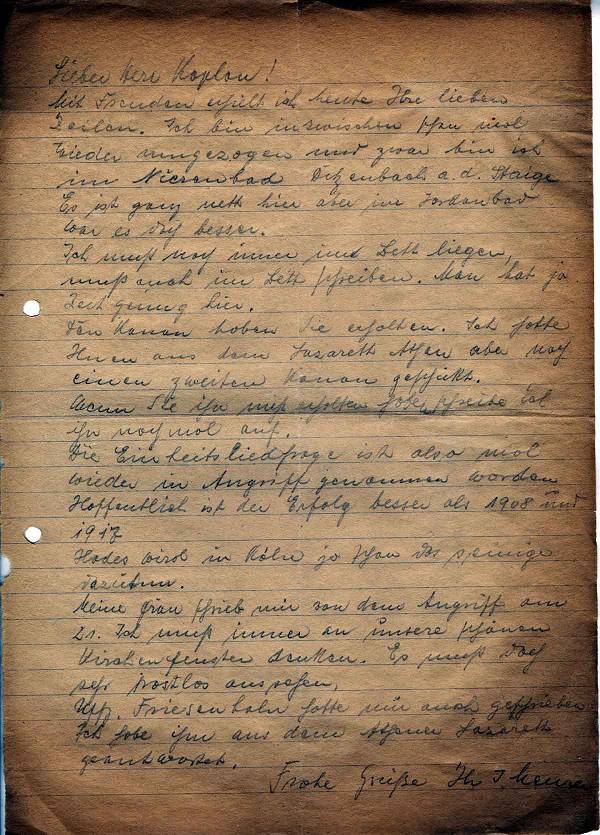 Lieber Herr Kaplan!
Mit Freuden erhielt ich heute Ihre lieben
Zeilen. Ich bin inzwischen schon mal
wieder umgezogen und zwar bin ich
im Ditzenbach a. d. Staige
Es ist ganz nett hier aber im Jordanbad
war es doch besser.
Ich muß noch immer im Bett liegen,
muß auch im Bett schreiben. Man hat ja
Zeit genug hier.
Den Kanon haben Sie erhalten. Ich hatte
Ihnen aus dem Lazarett Athen aber noch
einen zweiten Kanon geschickt.
Wenn Sie ihn nicht erhalten habe, schreibe ich
ihn nochmal auf.
Die Einheitsliedfrage ist also mal
wieder in Angriff genommen worden
Hoffentlich ist der Erfolg besser als 1908 und
1917
Hades wird in Köln ja schon das seinige
dazutun.
Meine Frau schrieb mir von dem Angriff am
21. Ich muß immer an unsere schönen
Kirchenfenster denken. Es muß doch
sehr trostlos aussehen,
Uffz. Friesenhahn hatte mir auch geschrieben
Ich habe ihm aus dem Athener Lazarett
geantwortet.
Frohe Grüße Ihr J.